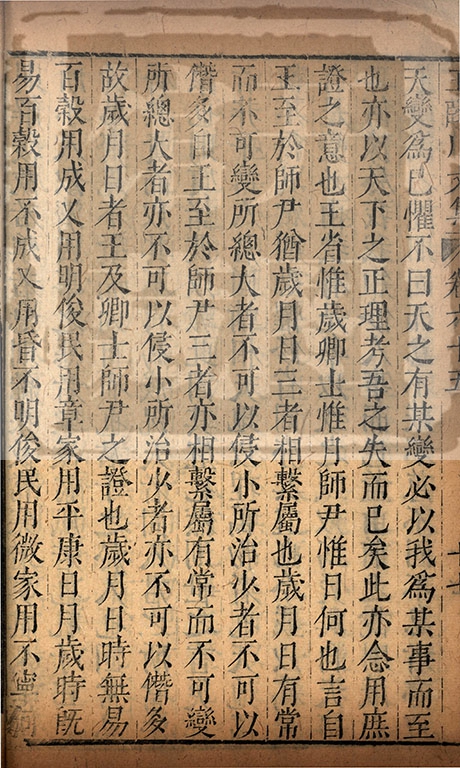 王臨川文集 卷六十五
天變爲己懼不曰天之有某變必以我爲某事而至
也亦以天下之正理考吾之失而已矣此亦念用庶
證之意也王省惟歲卿士惟月師尹惟日何也言自
王至於師尹猶歲月日三者相繫屬也歲月日有常
而不可變所總大者不可以侵小所治少者不可以
僭多自王至於師尹三者亦相繫屬有常而不可變
所總大者亦不可以侵小所治少者亦不可以僭多
故歲月日者王及卿士師尹之證也歲月日時無易
百穀用成乂用明俊民用章家用平康日月歲時既
易百穀用不成乂用昏不明俊民用微家用不寧